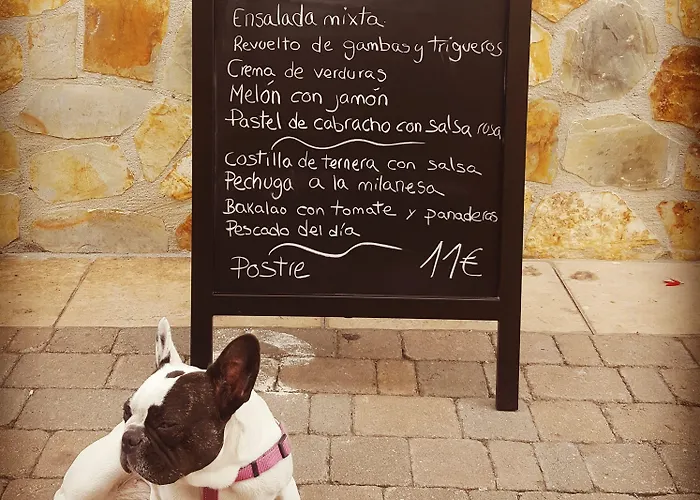 Ensalada mixta
Revuelto de gambas y trigueros
Crema de verduras
Melón con jamón
Pastel de cabracho con salsa rosa
Costilla de ternera con salsa
Pechuga a la milanesa
Bakalao con tomate y panaderas
Pescado del día
Postre 11€